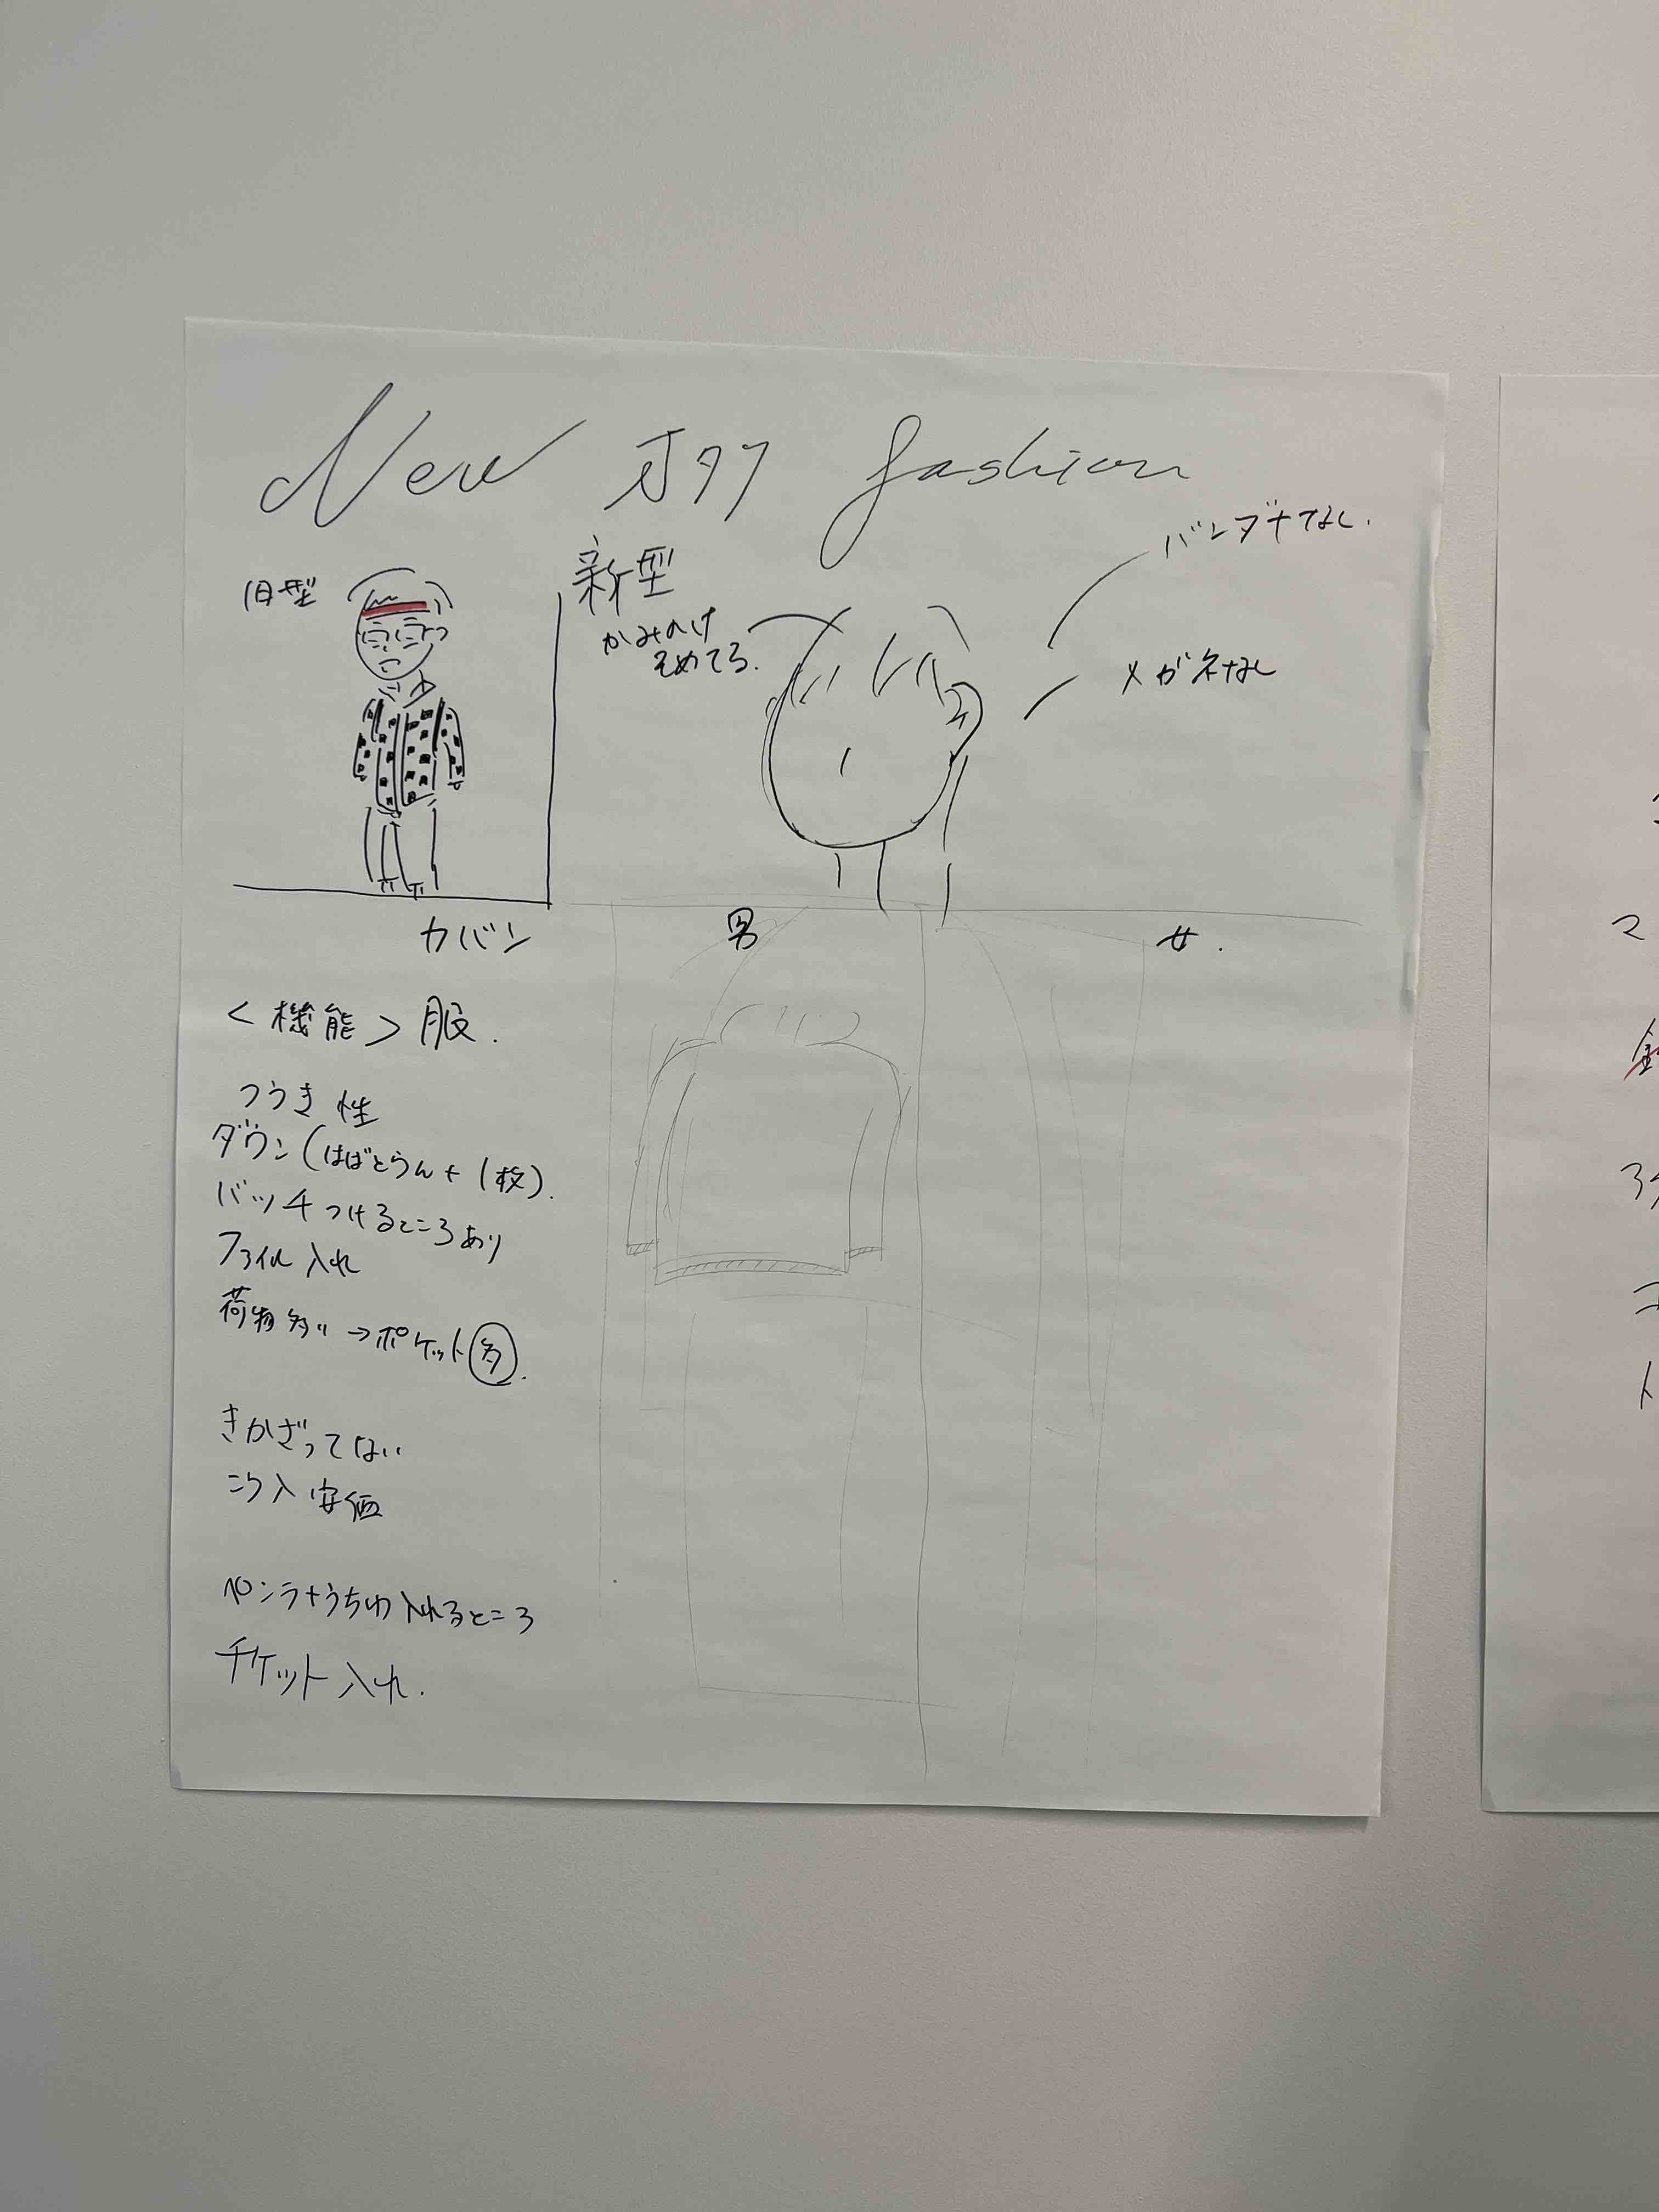 New オタク fashion
旧型
新型
バンダナなし.
かみのけ
そめてる.
メガネなし
カバン
男
女.
<機能>服.
つうき性
ダウン(はばとらん+1枚).
バッチつけるところあり
ファイル入れ
荷物多い→ポケット多.
きかざってない
こう入安価
ペンラ+うちわ入れるところ
チケット入れ.